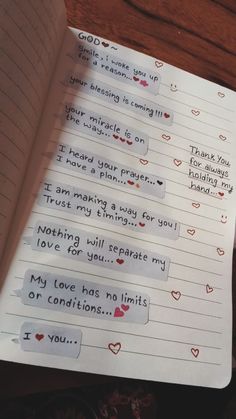 GOD❤~
Smile, i woke you up
for a reason...❤💕
your blessing is coming!!!❤
your miracle is on
the way...❤❤❤
I heard your prayer...❤
I have a plan...❤❤
Thank You
for always
holding my
hand...❤
I am making a way for you!
Trust my timing...❤❤
Nothing will separate my
love for you...❤
My Love has no limits
or conditions...💕
I ❤ you...